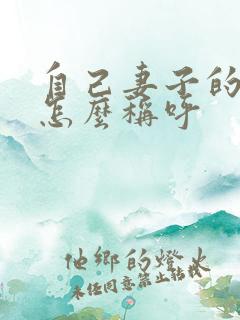 自己妻子的
怎麼稱呼
他鄉的燈火
未经同意禁止转载